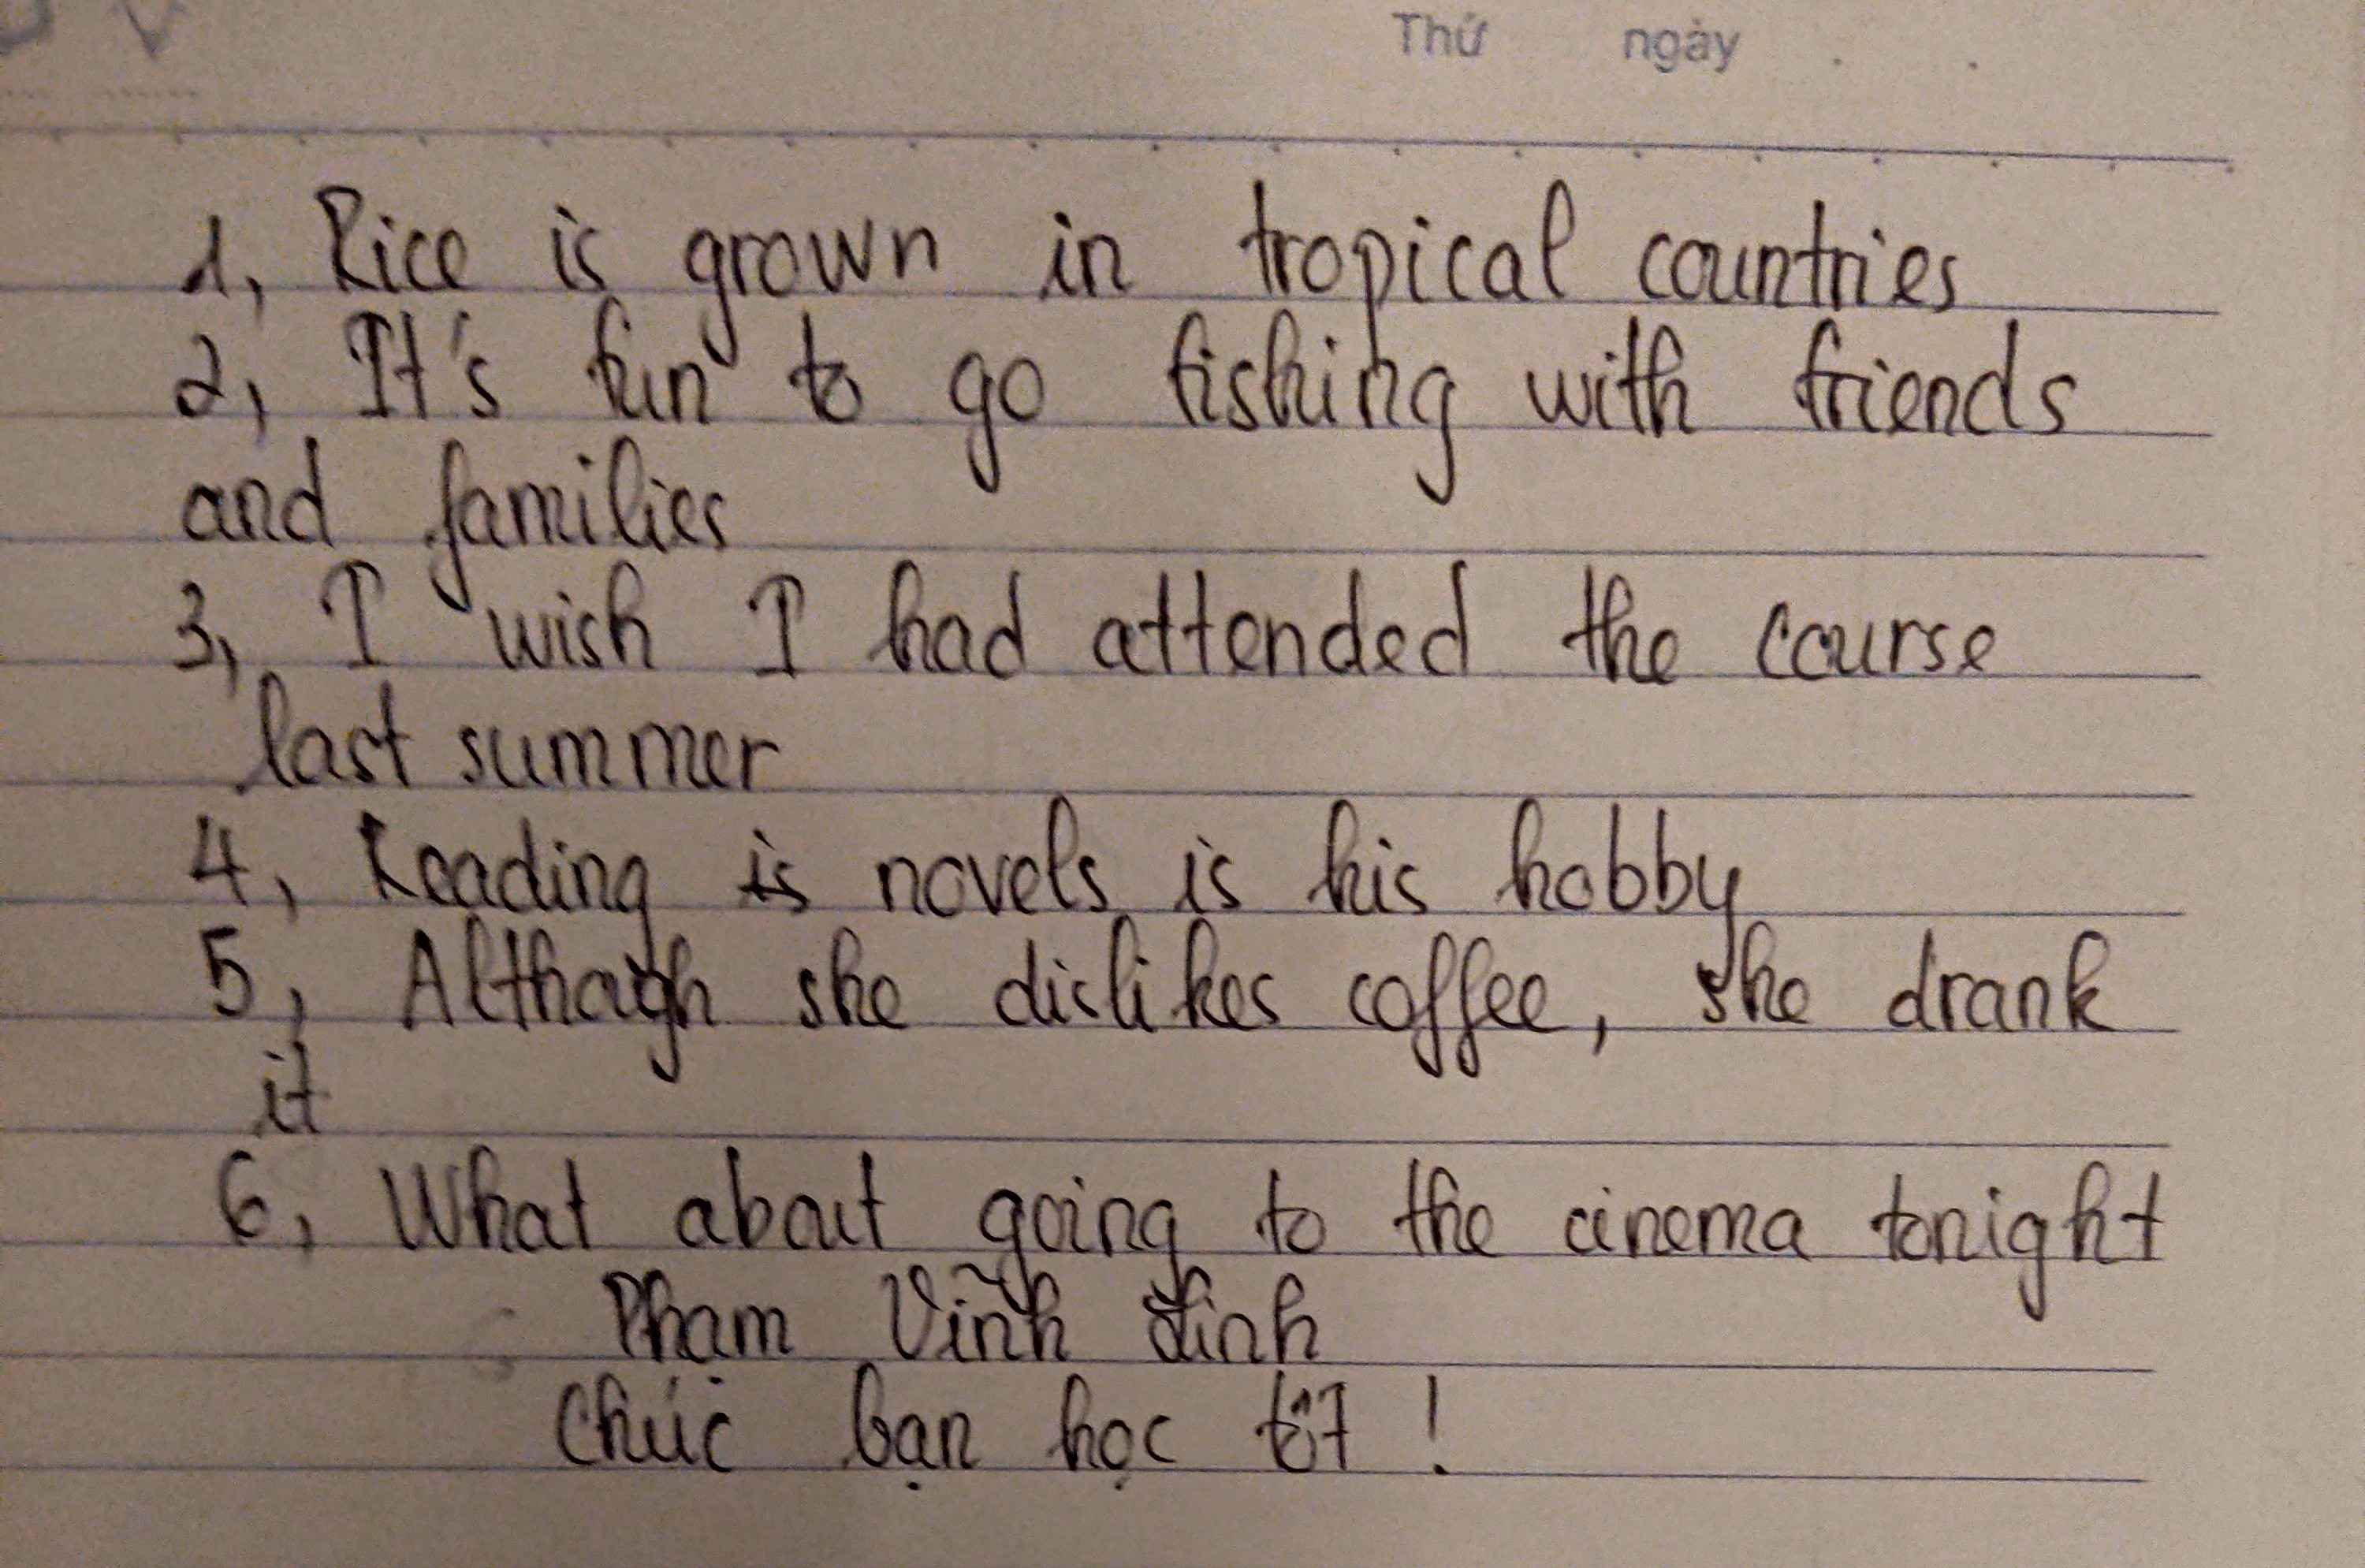 Thứ ngày
1, Rice is grown in tropical countries
2, It's fun to go fishing with friends
and families
3, I wish I had attended the course
last summer
4, Reading is novels is his hobby
5, Although she dislikes coffee, she drank
it
6, What about going to the cinema tonight
Phạm Vĩnh Định
Chúc bạn học tốt !